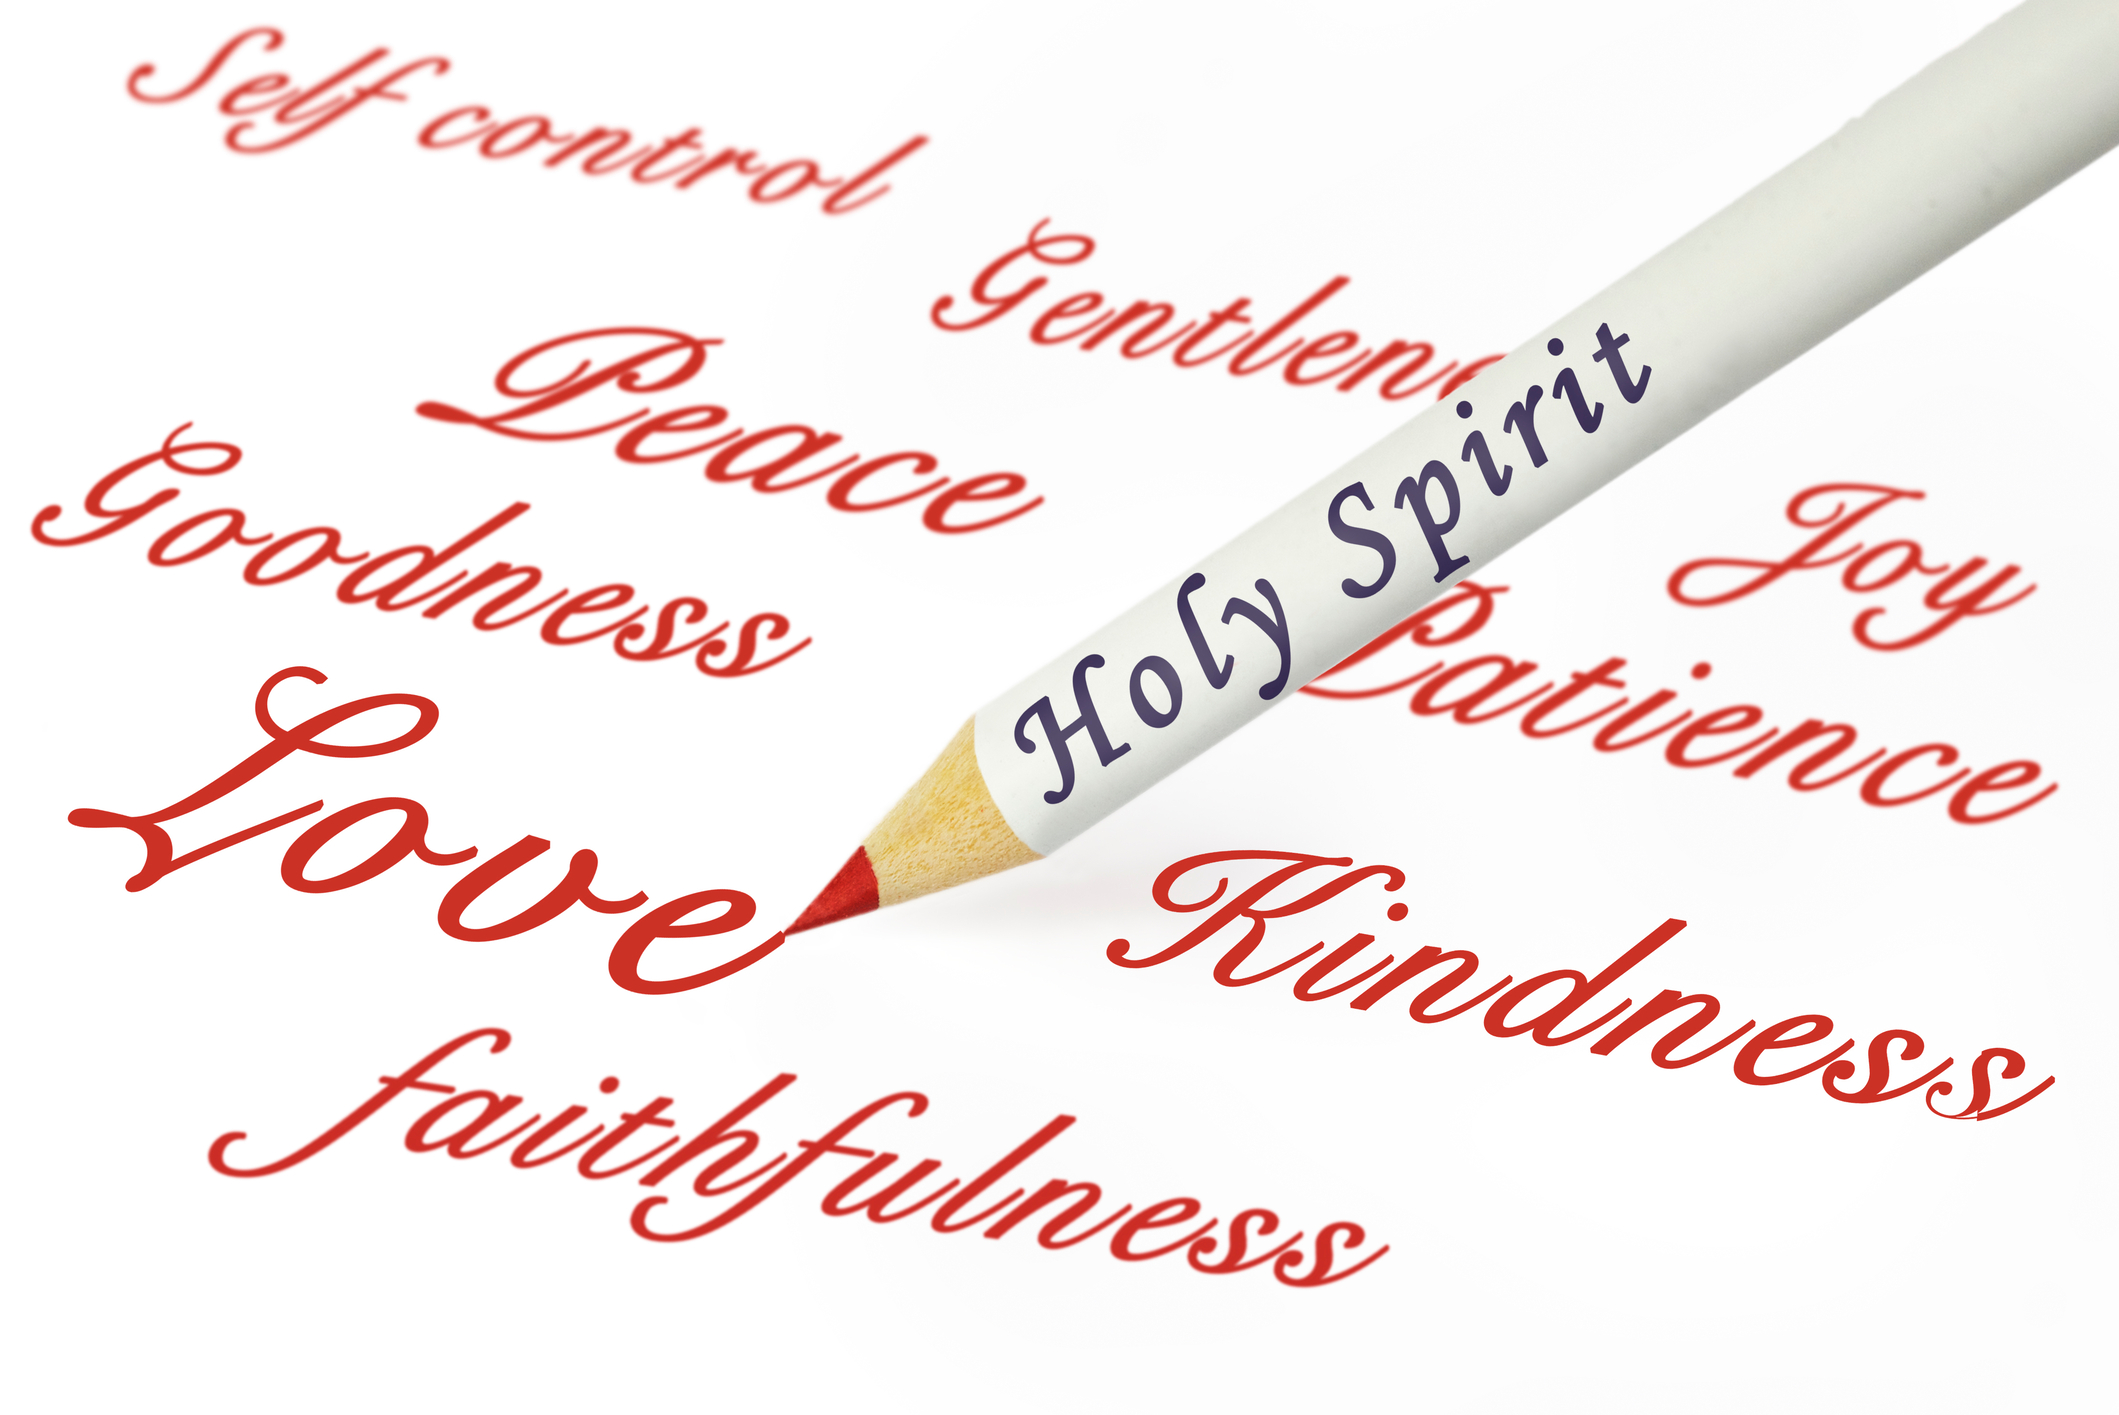 Self control
Gentlene
Peace
Goodness
Joy
Holy Spirit
Patience
Love
Kindness
faithfulness